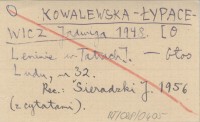 KOWALEWSKA-ŁYPACE-
WICZ Jadwiga 1948. [O
Leninie w Tatrach]. — Głos
Ludu, nr 32.
Rec.: Sieradzki J. 1956
(z cytatami).